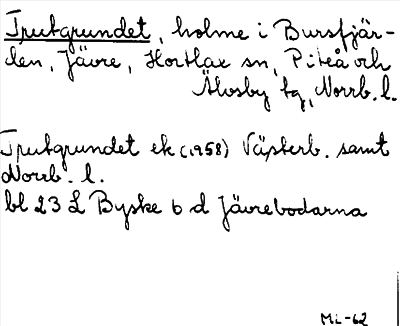 Trutgrundet, holme i Bursfjär-
den, Jävre, Hortlax sn, Piteå och
Älvsby tg, Norrb. l.
Trutgrundet ek (1958) Västerb. samt
Norrb. l.
bl 23 L Byske 6 d Jävrebodarna
ML-62